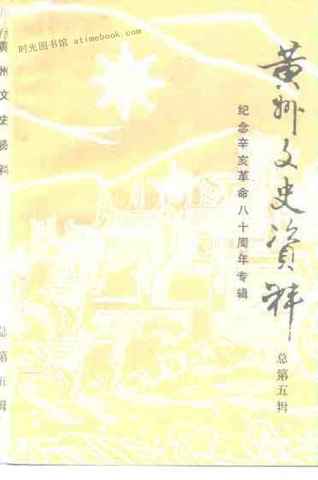 时光图书馆 atimebook.com
黄州文史资料
纪念辛亥革命八十周年专辑
总第五辑
黄州文史资料
总第五辑